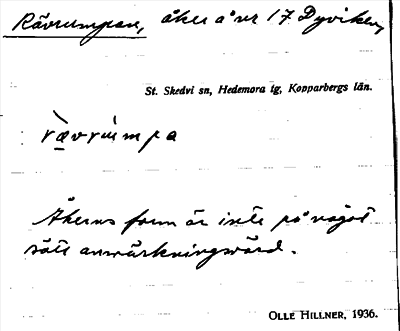 Rävrumpan, åker å nr 17 Dyviken,
St. Skedvi sn, Hedemora tg, Kopparbergs län.
ræ̀vrùmpa
Åkerns form är inte på något
sätt anmärkningsvärd.
OLLE HILLNER, 1936.